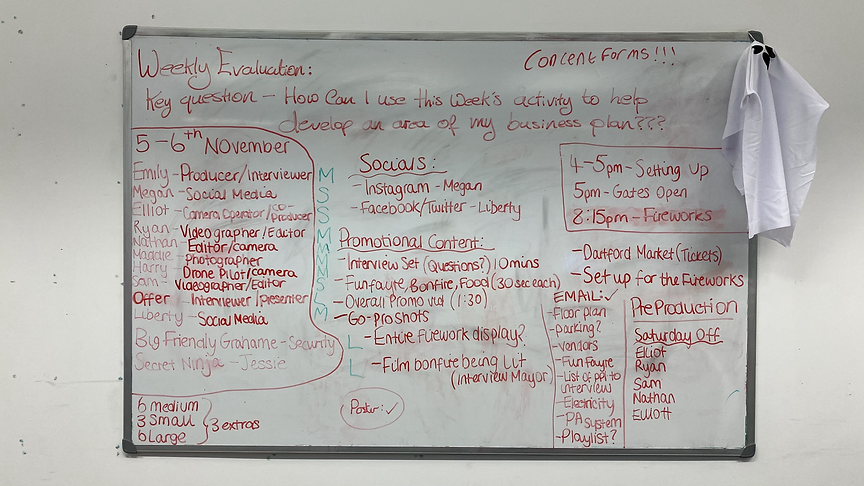 Weekly Evaluation:
Consent forms!!!
Key question - How Can I use this week's activity to help
develop an area of my business plan???
5-6th November
Emily - Producer/Interviewer M
Megan - Social Media S
Elliot - Camera Operator/co-Producer S
Ryan - Videographer/Editor M
Nathan - Editor/camera M
Maddie - Photographer M
Harry - Drone Pilot/camera M
Sam - Videographer/Editor S
Offer - Interviewer/presenter L
Liberty - Social Media M
Big Friendly Grahame - Security L
Secret Ninja - Jessie L
6 medium
3 Small
6 Large
3 extras
Socials:
- Instagram - Megan
- Facebook/Twitter - Liberty
Promotional Content:
- Interview Set (Questions?) 10mins
- Funfayre, Bonfire, Food (30 sec each)
- Overall Promo vid (1:30)
- Go-pro shots
- Entire firework display?
- Film bonfire being lit
(Interview Mayor)
Poster: ✓
4-5pm - Setting Up
5pm - Gates Open
8:15pm - Fireworks
- Dartford Market (Tickets)
- Set up for the Fireworks
EMAIL: ✓
- Floor plan
- parking?
- vendors
- Funfayre
- List of ppl to
interview
- Electricity
- PA system
- Playlist?
PreProduction
Saturday Off
Elliot
Ryan
Sam
Nathan
Elliott